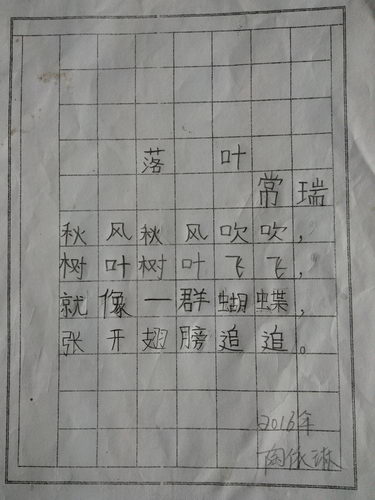 落 叶
常瑞
秋风秋风吹吹,
树叶树叶飞飞,
就像一群蝴蝶,
张开翅膀追追。
2016年
陶依琳